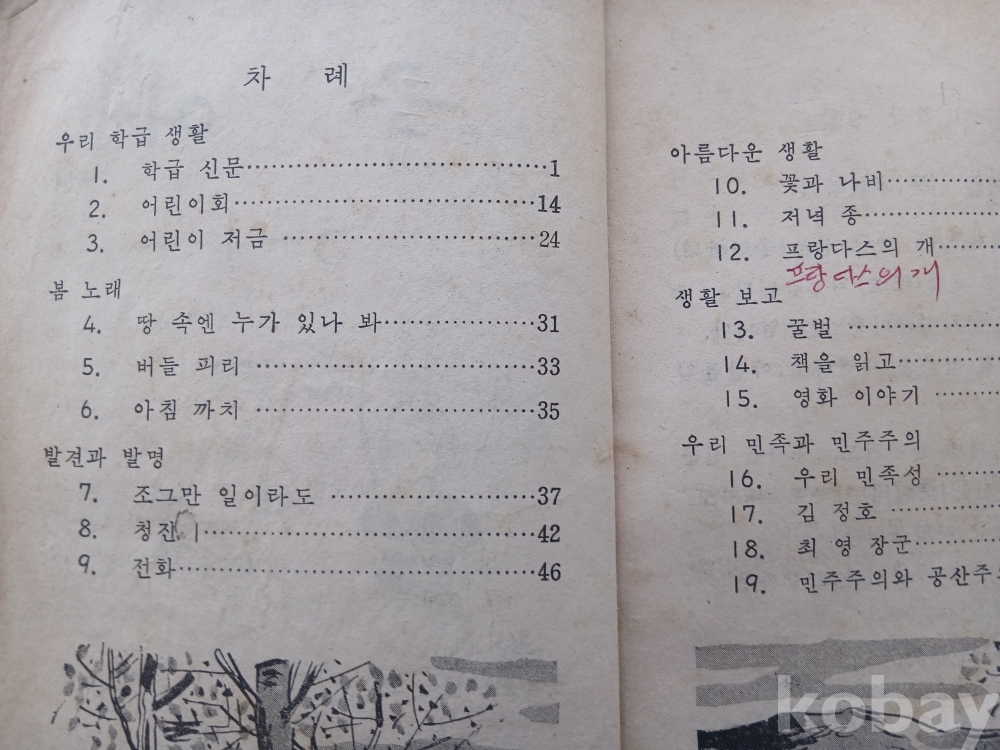 차 례
우리 학급 생활
1. 학급 신문……………………………1
2. 어린이회……………………………14
3. 어린이 저금 ………………………24
봄 노래
4. 땅 속엔 누가 있나 봐……………31
5. 버들 피리 …………………………33
6. 아침 까치 …………………………35
발견과 발명
7. 조그만 일이라도 …………………37
8. 청진기………………………………42
9. 전화…………………………………46
아름다운 생활
10. 꽃과 나비…………
11. 저녁 종……………
12. 프랑다스의 개……
프랑다스의 개
생활 보고
13. 꿀벌 ………………
14. 책을 읽고…………
15. 영화 이야기 ………
우리 민족과 민주주의
16. 우리 민족성 ………
17. 김 정호 ……………
18. 최 영 장군…………
19. 민주주의와 공산주의
kobay